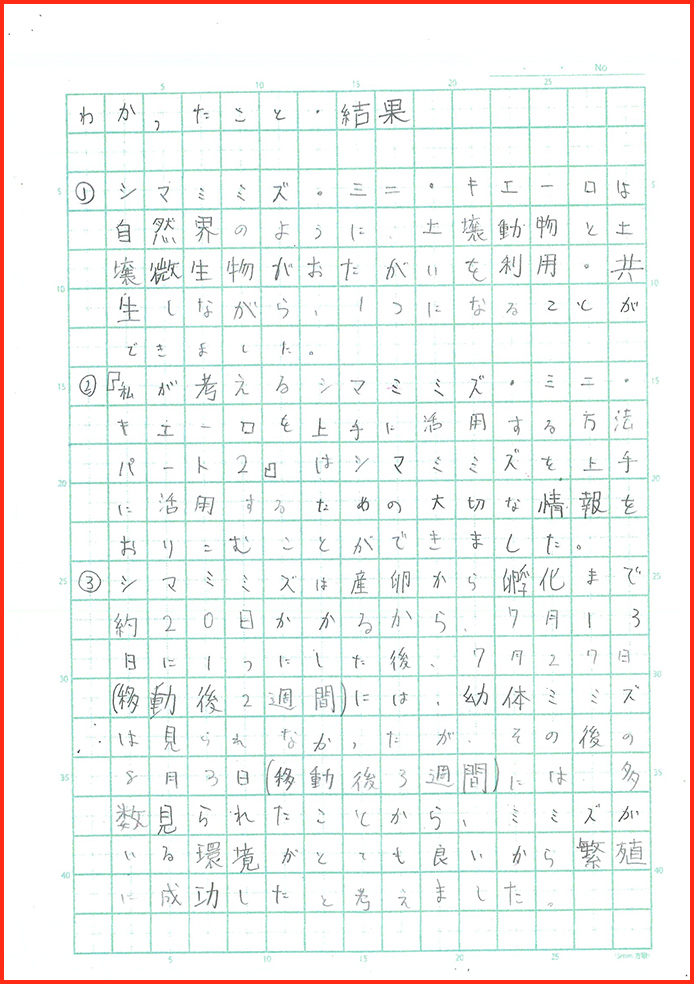 5 10 15 20 25
No
わかったこと・結果
① シマミミズ・ミニ・キエーロは
自然界のように、土壌動物と土
壌微生物がおたがいを利用・共
生しながら、1つになることが
できました。
② 『私が考えるシマミミズ・ミニ・
キエーロを上手に活用する方法
パート2』はシマミミズを上手
に活用するための大切な情報を
おりこむことができました。
③ シマミミズは産卵から孵化まで
約20日かかるから、7月13
日に1つにした後、7月27日
(移動後2週間)には、幼体ミミズ
は見られなかったが、その後の
8月3日(移動後3週間)には、多
数見られたことから、ミミズが
いる環境がとても良いから繁殖
に成功したと考えました。
5 10 15 20 25
5mm方眼